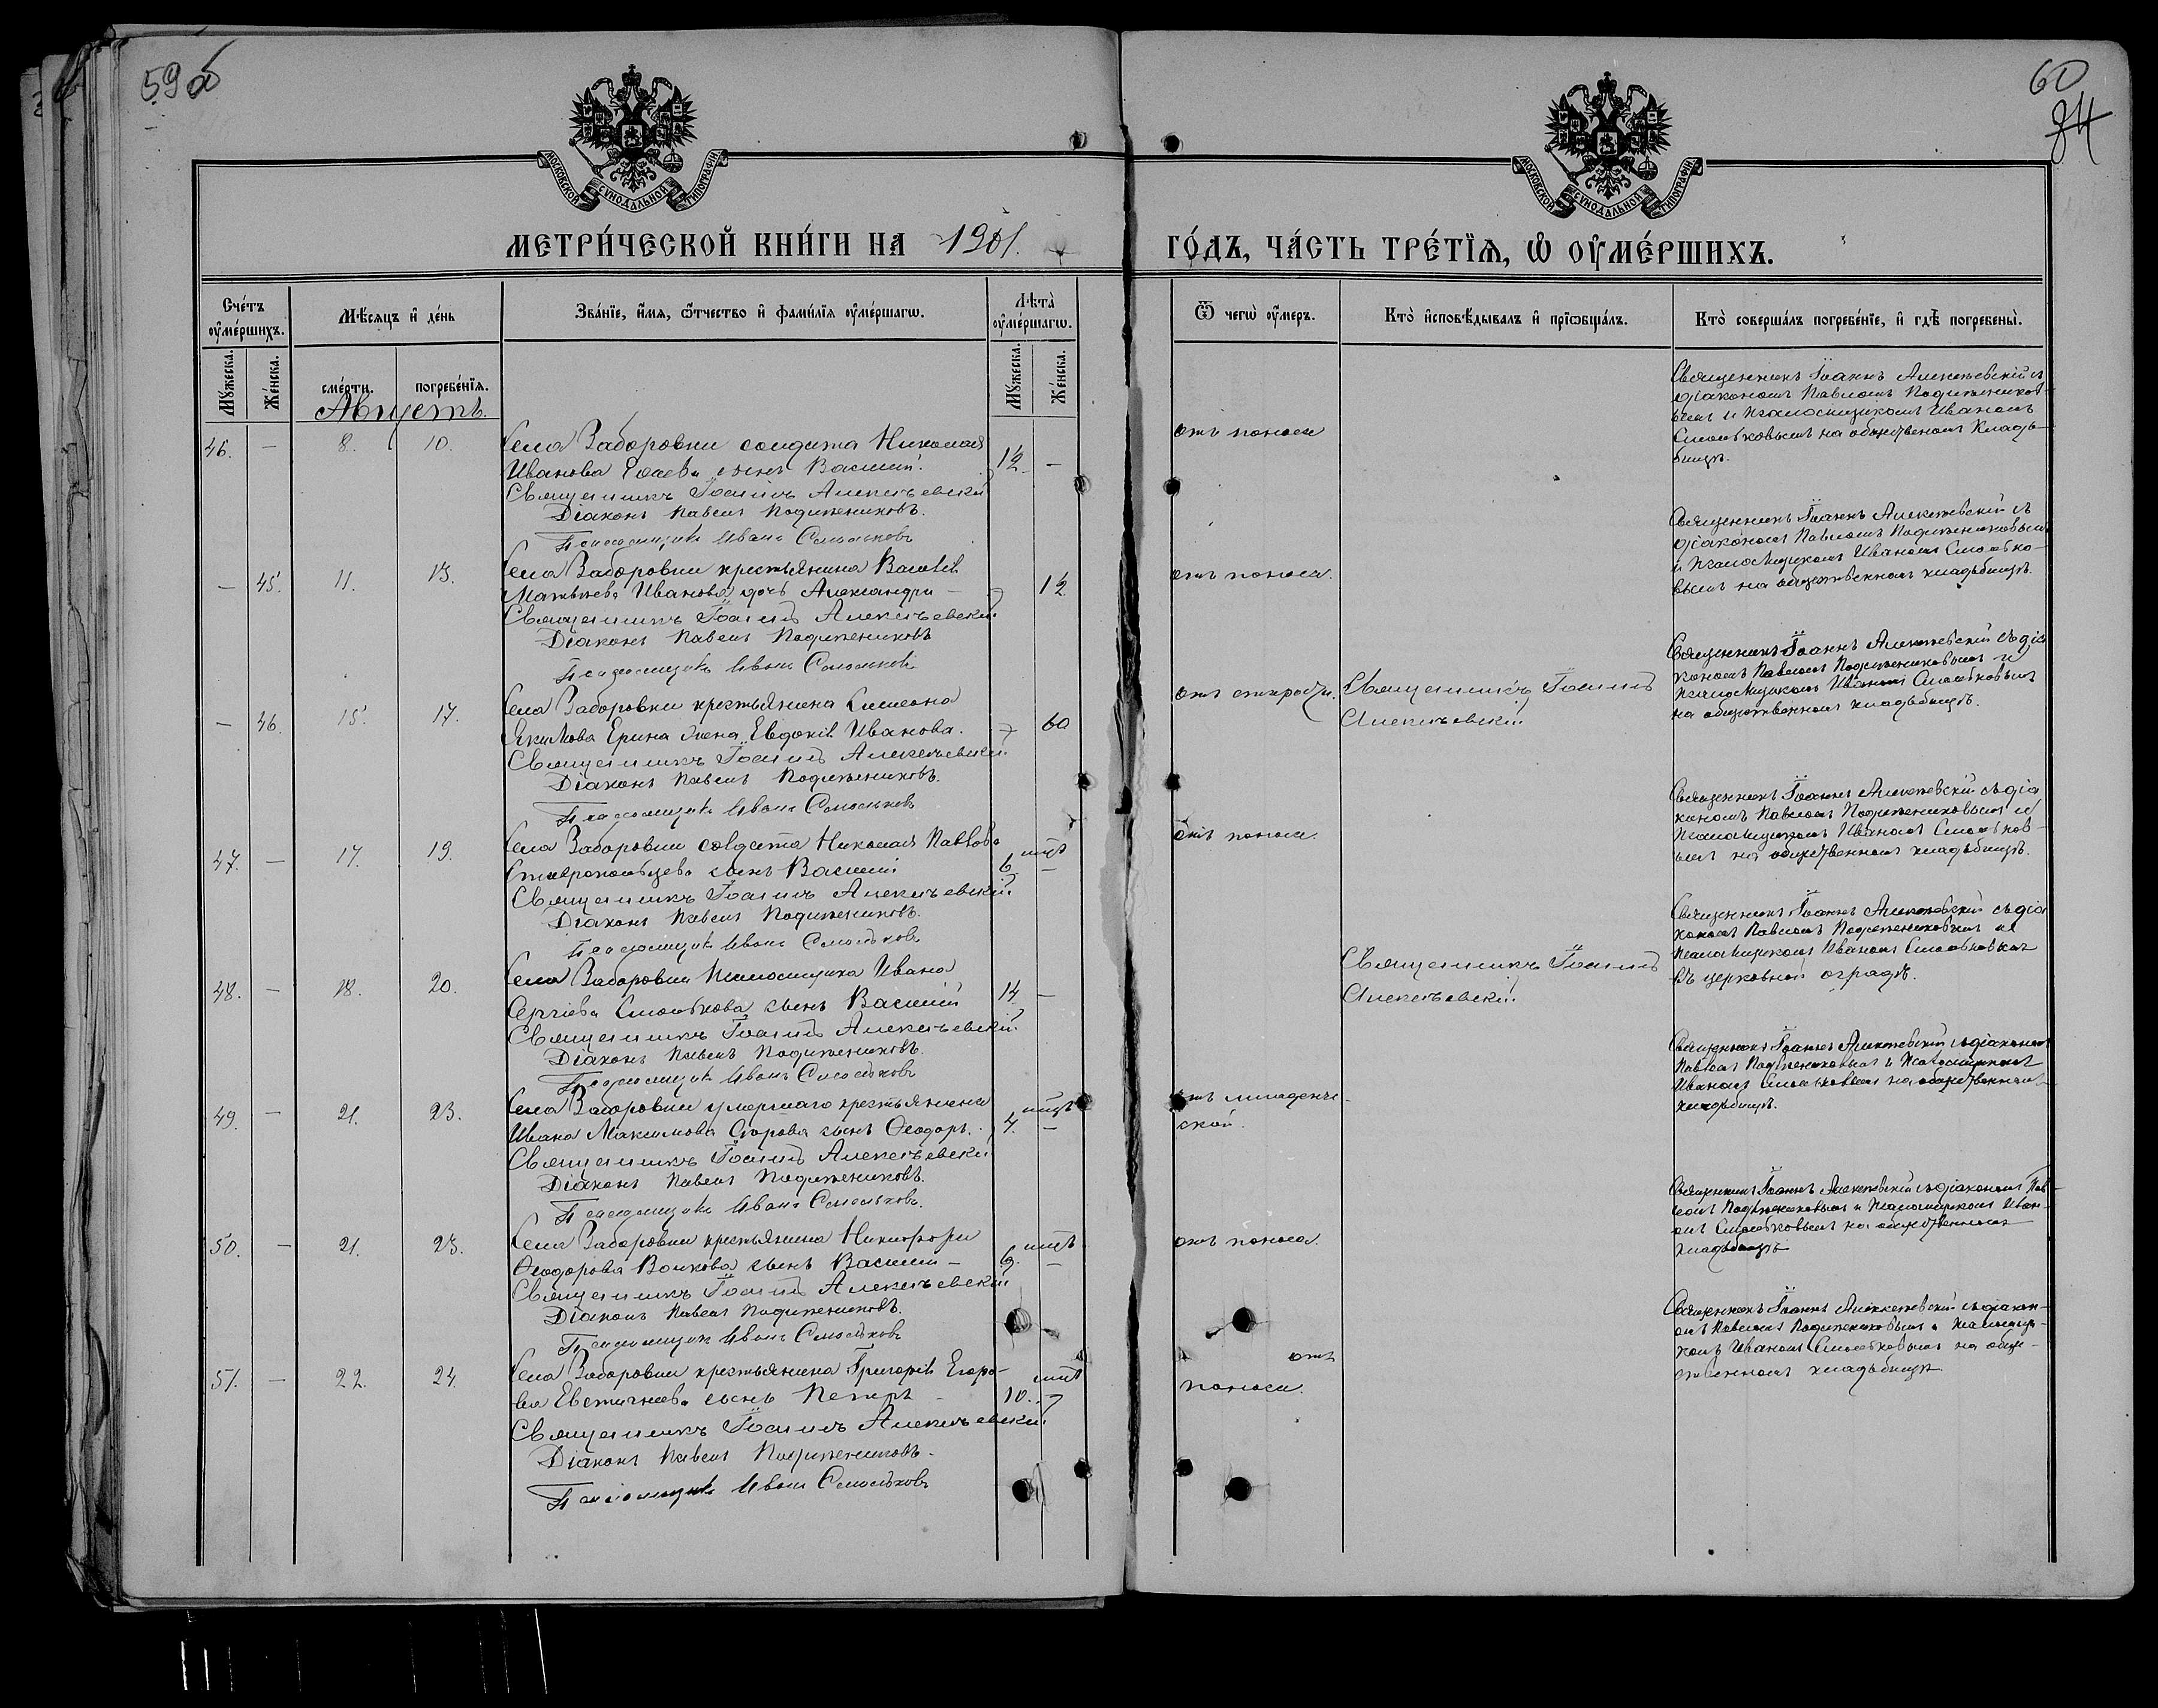 59 об
60
84
МОСКОВСКОЙ СѴНОДАЛЬНОЙ ТИПОГРАФІИ
МОСКОВСКОЙ СѴНОДАЛЬНОЙ ТИПОГРАФІИ
МЕТРИ́ЧЕСКОЙ КНИ́ГИ НА 1901. ГО́ДЪ, ЧА́СТЬ ТРЕ́ТЇѦ, Ѡ҆ ОУ҆МЕ́РШИХЪ.
Сче́тъ оу҆ме́ршихъ.
Мѣ́сѧцъ и҆ де́нь
Зва́нїе, и҆́мѧ, ѻ҆́тчество и҆ фами́лїѧ оу҆ме́ршагѡ.
Лѣ́та оу҆ме́ршагѡ.
Ѿ чегѡ̀ оу҆́меръ.
Кто̀ и҆сповѣ́дывалъ и҆ прїѡбща́лъ.
Кто̀ соверша́лъ погребе́нїе, и҆ гдѣ̀ погребены̀.
Мꙋ́жеска.
Же́нска.
сме́рти.
погребе́нїѧ.
Мꙋ́жеска.
Же́нска.
Августъ.
46. — 8. 10. Села Заборовки солдата Николая
Иванова сынъ Василій. 12 —
Священникъ Іоаннъ Алексѣевскій
Діаконъ Павелъ Подъячениковъ
Псаломщикъ Иванъ Смольковъ
отъ поноса
Священникъ Іоаннъ Алексѣевскій съ
діакономъ Павломъ
и псаломщикомъ Иваномъ
Смольковымъ на общественномъ кладбищѣ.
— 45. 11. 13. Села Заборовки крестьянина Василія
Матвѣева Иванова дочь Александра — 12
Священникъ Іоаннъ Алексѣевскій
Діаконъ Павелъ
Псаломщикъ Иванъ Смольковъ
отъ поноса.
Священникъ Іоаннъ Алексѣевскій съ
діакономъ Павломъ
и псаломщикомъ Иваномъ Смолько-
вымъ на общественномъ кладбищѣ.
— 46. 15. 17. Села Заборовки крестьянина Симеона
Якимова Ерина жена Евдокія Иванова. 60
Священникъ Іоаннъ Алексѣевскій
Діаконъ Павелъ
Псаломщикъ Иванъ Смольковъ
отъ старости.
Священникъ Іоаннъ
Алексѣевскій
Священникъ Іоаннъ Алексѣевскій съ діа
кономъ Павломъ и
псаломщикомъ Иваномъ Смольковымъ
на общественномъ кладбищѣ.
47. — 17. 19. Села Заборовки солдата Николая Павлова
Ставропольцева сынъ Василій 6 мцѣ —
Священникъ Іоаннъ Алексѣевскій
Діаконъ Павелъ
Псаломщикъ Иванъ Смольковъ
отъ поноса
Священникъ Іоаннъ Алексѣевскій съ діа
кономъ Павломъ и
псаломщикомъ Иваномъ Смольков-
ымъ на общественномъ кладбищѣ.
48. — 18. 20. Села Заборовки псаломщика Ивана
Сергіева Смолькова сынъ Василій 14 —
Священникъ Іоаннъ Алексѣевскій
Діаконъ Павелъ
Псаломщикъ Иванъ Смольковъ
Священникъ Іоаннъ
Алексѣевскій
Священникъ Іоаннъ Алексѣевскій съ діа
кономъ Павломъ и
псаломщикомъ Иваномъ Смольковымъ
въ церковной оградѣ.
49. — 21. 23. Села Заборовки умершаго крестьянина
Ивана Максимова сынъ Ѳеодоръ. 4. мцѣ —
Священникъ Іоаннъ Алексѣевскій
Діаконъ Павелъ
Псаломщикъ Иванъ Смольковъ.
отъ младенче-
ской.
Священникъ Іоаннъ Алексѣевскій съ діакономъ
Павломъ и псаломщикомъ
Иваномъ Смольковымъ на общественномъ
кладбищѣ.
50. — 21. 23. Села Заборовки крестьянина Никифора
Ѳеодорова Волкова сынъ Василій — 9. мцѣ —
Священникъ Іоаннъ Алексѣевскій
Діаконъ Павелъ
Псаломщикъ Иванъ Смольковъ
отъ поноса.
Священникъ Іоаннъ Алексѣевскій съ діакономъ Пав-
ломъ и псаломщикомъ Иван-
омъ Смольковымъ на общественномъ
кладбищѣ
51. — 22. 24. Села Заборовки крестьянина Григорія Егоро-
ва Евстигнеева сынъ Петръ — 10. мцѣ —
Священникъ Іоаннъ Алексѣевскій
Діаконъ Павелъ
Псаломщикъ Иванъ Смольковъ
отъ
поноса.
Священникъ Іоаннъ Алексѣевскій съ діакон-
омъ Павломъ и псаломщи-
комъ Иваномъ Смольковымъ на обще-
ственномъ кладбищѣ